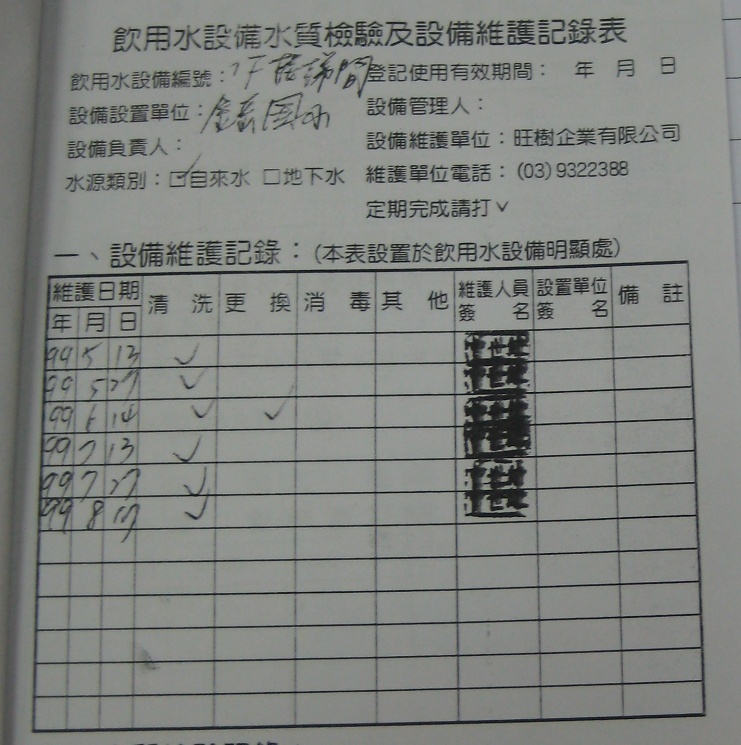 飲用水設備水質檢驗及設備維護記錄表
飲用水設備編號：1F樓梯間 登記使用有效期間： 年 月 日
設備設置單位：金岳國小 設備管理人：
設備負責人： 設備維護單位：旺樹企業有限公司
水源類別：☑自來水 □地下水 維護單位電話：(03)9322388
定期完成請打✓
一、設備維護記錄：(本表設置於飲用水設備明顯處)
維護日期 清洗 更換 消毒 其他 維護人員簽名 設置單位簽名 備註
年 月 日
99 5 13 ✓
99 5 27 ✓
99 6 14 ✓ ✓
99 7 13 ✓
99 7 27 ✓
99 8 17 ✓